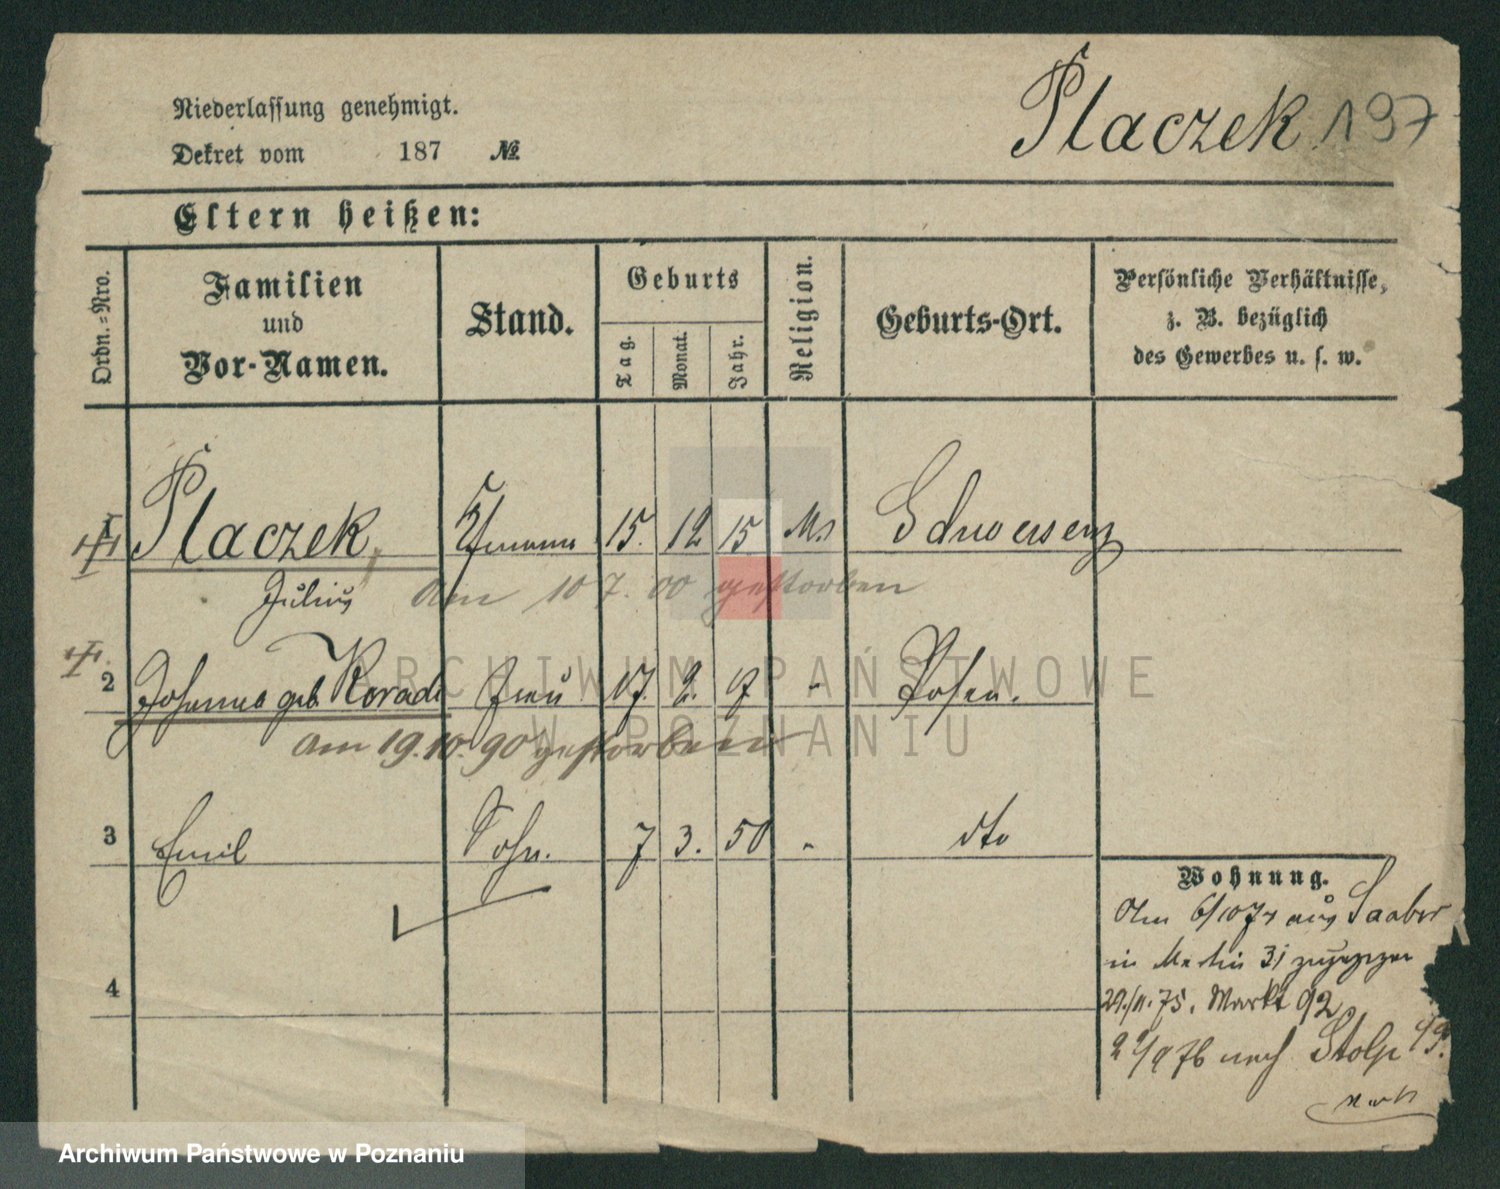 Niederlassung genehmigt.
Dekret vom 187 №
Placzek 197
Eltern heißen:
Ordn.-Nro.
Familien
und
Vor-Namen.
Stand.
Geburts
Tag.
Monat.
Jahr.
Religion.
Geburts-Ort.
Persönliche Verhältnisse,
z. B. bezüglich
des Gewerbes u. s. w.
Placzek 15. 12 15 Ms Schwersenz
Julius am 10 7. 00 gestorben
2 Johanna geb. Korade Frau 17. 2. 17 - Posen.
am 19.10.90 gestorben
3 Emil Sohn. 7 3. 50 - dto
4
Wohnung.
6/10 74 aus
in 31 zugezogen
29./11. 75. Markt 92
2/9 76 nach Stolp
ARCHIWUM PAŃSTWOWE
W POZNANIU
Archiwum Państwowe w Poznaniu